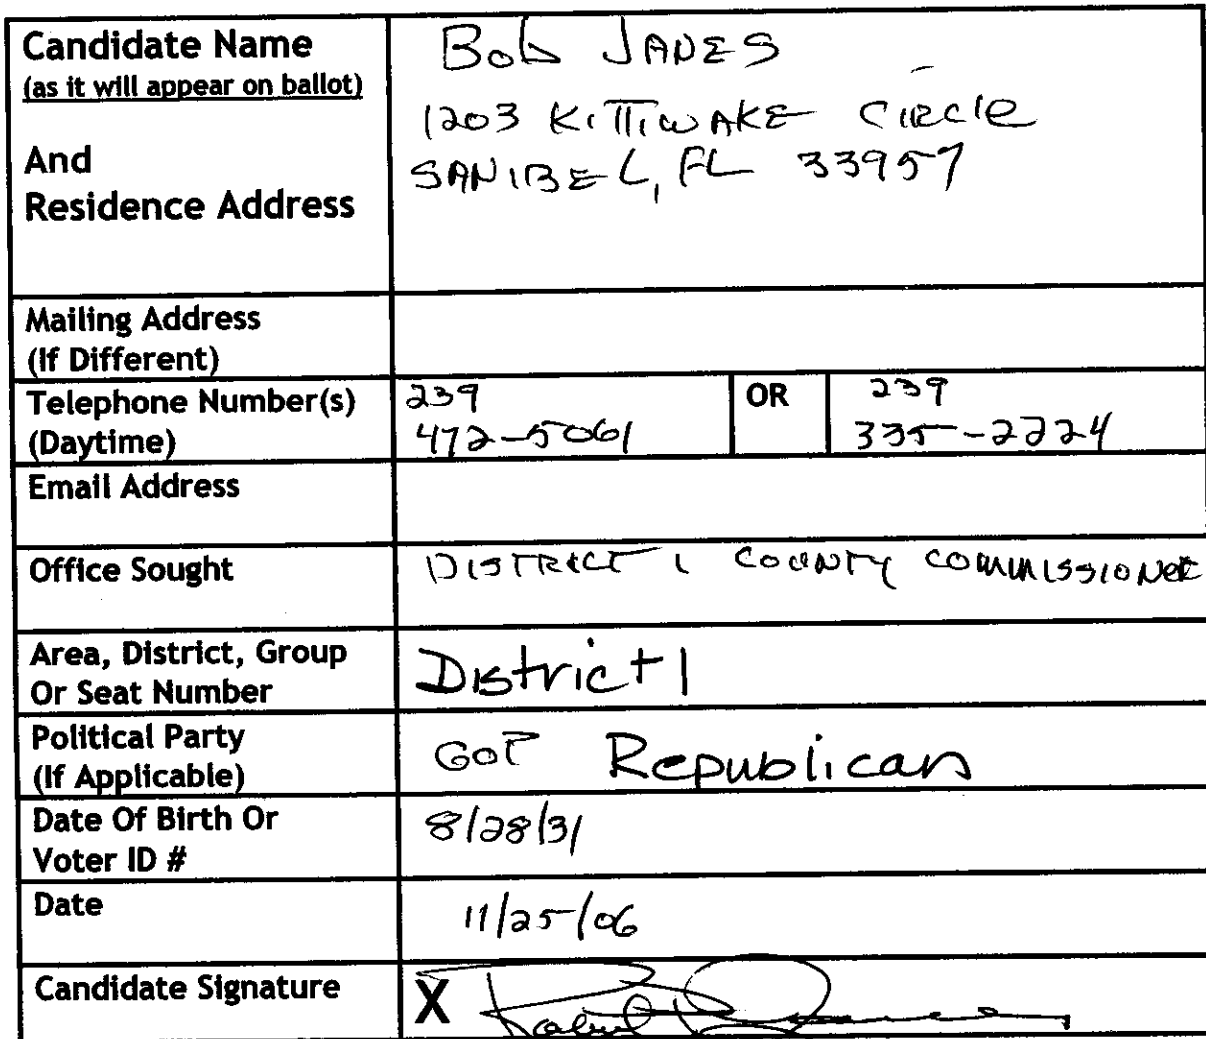 Candidate Name
(as it will appear on ballot)
And
Residence Address
Bob JANES
1203 KITTIWAKE CIRCLE
SANIBEL, FL 33957
Mailing Address
(If Different)
Telephone Number(s)
(Daytime)
239
472-5061
OR
239
335-2224
Email Address
Office Sought
DISTRICT 1 COUNTY COMMISSIONER
Area, District, Group
Or Seat Number
District 1
Political Party
(If Applicable)
GOP Republican
Date Of Birth Or
Voter ID #
8/28/31
Date
11/25/06
Candidate Signature
X